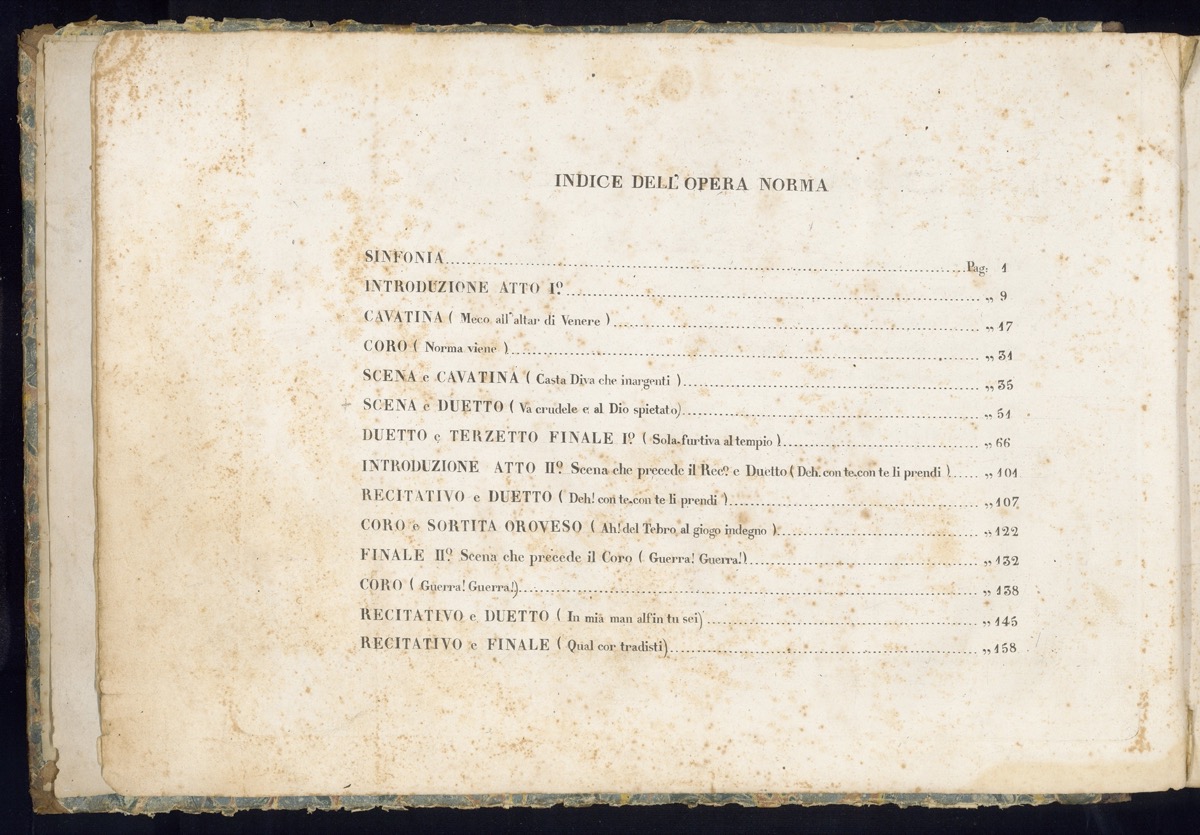 INDICE DELL' OPERA NORMA
SINFONIA Pag: 1
INTRODUZIONE ATTO Iº „ 9
CAVATINA ( Meco all'altar di Venere ) „ 17
CORO ( Norma viene ) „ 31
SCENA e CAVATINA ( Casta Diva che inargenti ) „ 35
SCENA e DUETTO ( Va crudele e al Dio spietato) „ 51
DUETTO e TERZETTO FINALE Iº ( Sola furtiva al tempio ) „ 66
INTRODUZIONE ATTO IIº Scena che precede il Recº e Duetto ( Deh. con te. con te li prendi ) „ 101
RECITATIVO e DUETTO ( Deh! con te. con te li prendi ) „ 107
CORO e SORTITA OROVESO ( Ah! del Tebro al giogo indegno ) „ 122
FINALE IIº Scena che precede il Coro ( Guerra! Guerra!) „ 132
CORO ( Guerra! Guerra!) „ 138
RECITATIVO e DUETTO ( In mia man alfin tu sei) „ 145
RECITATIVO e FINALE ( Qual cor tradisti) „ 158